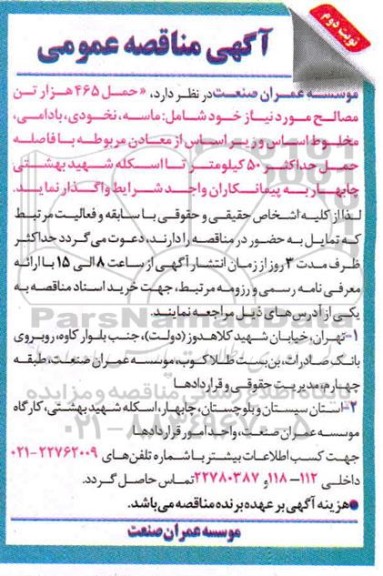 نوبت دوم
آگهی مناقصه عمومی
موسسه عمران صنعت در نظر دارد، «حمل ۴۶۵ هزار تن
مصالح مورد نیاز خود شامل: ماسه، نخودی، بادامی،
مخلوط اساس و زیر اساس از معادن مربوطه با فاصله
حمل حداکثر ۵۰ کیلومتر تا اسکله شهید بهشتی
چابهار به پیمانکاران واجد شرایط واگذار نماید.
لذا از کلیه اشخاص حقیقی و حقوقی با سابقه و فعالیت مرتبط
که تمایل به حضور در مناقصه را دارند، دعوت می گردد حداکثر
ظرف مدت ۳ روز از زمان انتشار آگهی از ساعت ۸ الی ۱۵ با ارائه
معرفی نامه رسمی و رزومه مرتبط، جهت خرید اسناد مناقصه به
یکی از آدرس های ذیل مراجعه نمایند.
۱-تهران، خیابان شهید کلاهدوز (دولت)، جنب بلوار کاوه، روبروی
بانک صادرات، بن بست طلاکوب، موسسه عمران صنعت، طبقه
چهارم، مدیریت حقوقی و قراردادها
۲-استان سیستان و بلوچستان، چابهار، اسکله شهید بهشتی، کارگاه
موسسه عمران صنعت، واحد امور قراردادها
جهت کسب اطلاعات بیشتر با شماره تلفن های ۲۲۷۶۲۰۰۹-۰۲۱
داخلی ۱۱۲-۱۱۸ و ۲۲۷۸۰۳۸۷ تماس حاصل گردد.
●هزینه آگهی بر عهده برنده مناقصه می باشد.
موسسه عمران صنعت
ParsNamadData
پایگاه اطلاع رسانی مناقصه و مزایده